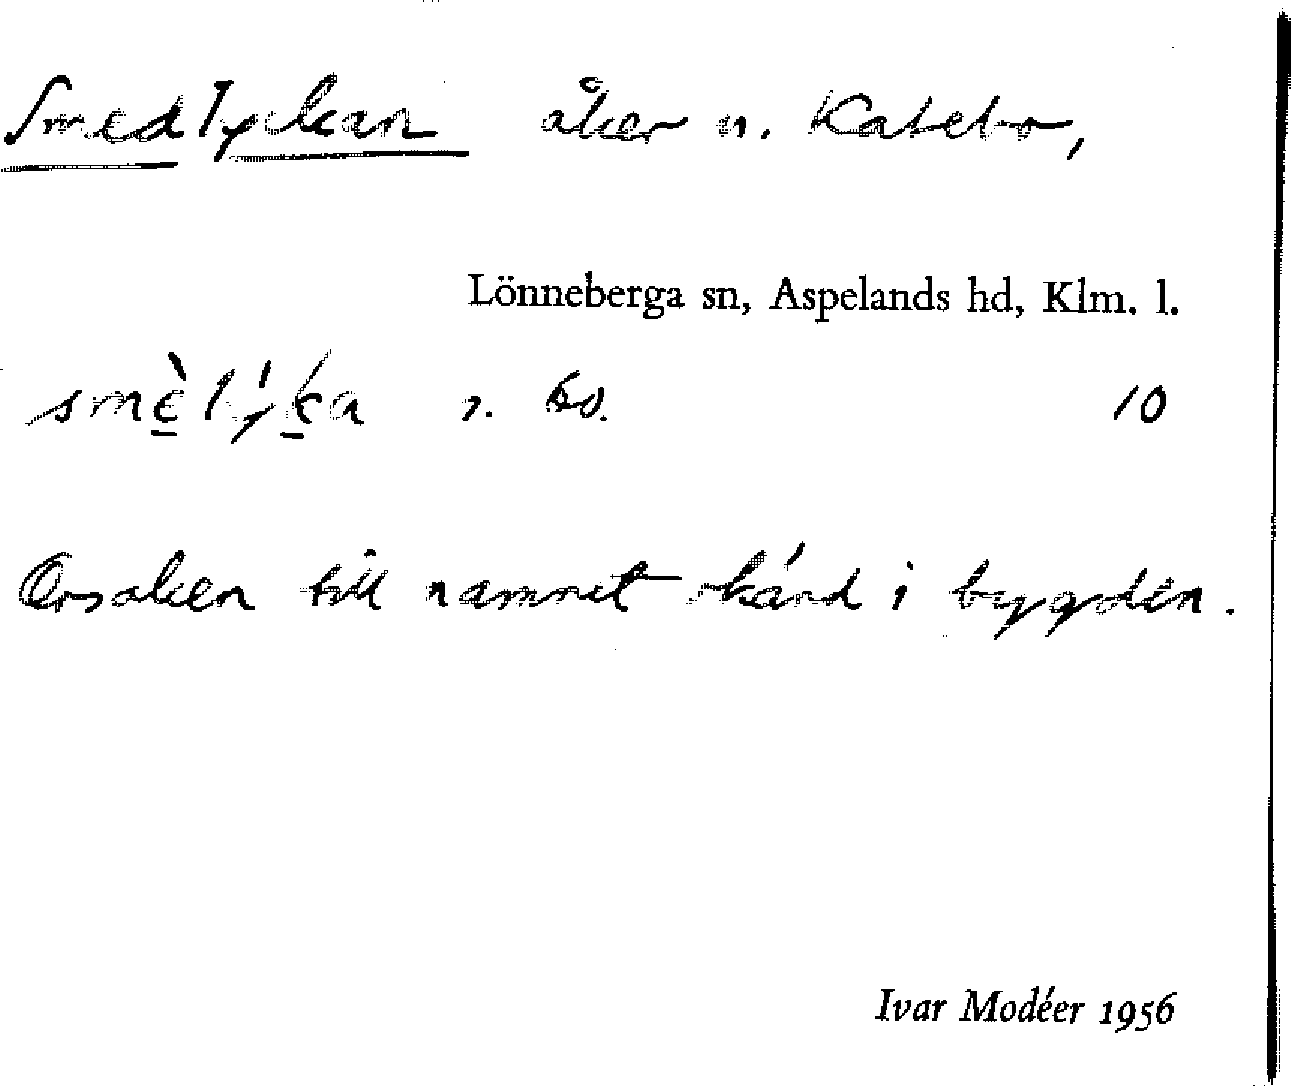 Smedlyckan åker n. Katebo,
Lönneberga sn, Aspelands hd, Klm. l.
smὲlýka 10
Orsaken till namnet okänd i bygden.
Ivar Modéer 1956